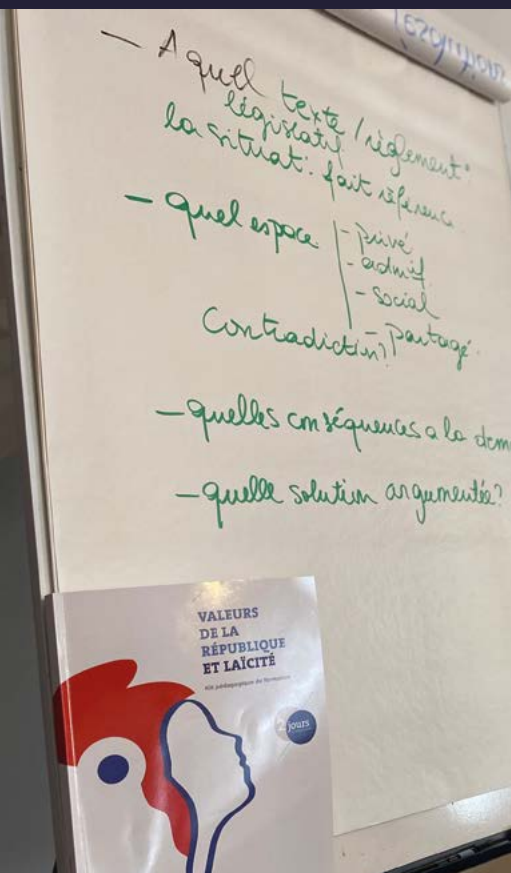 - A quel texte / règlement°
législatif
la situat: fait référence
- quel espace
- privé
- admif
- social
- partagé.
Contradiction?
- quelles conséquences a la dem
- quelle solution argumentée?
VALEURS
DE LA
RÉPUBLIQUE
ET LAÏCITÉ
Kit pédagogique de formation
2 jours